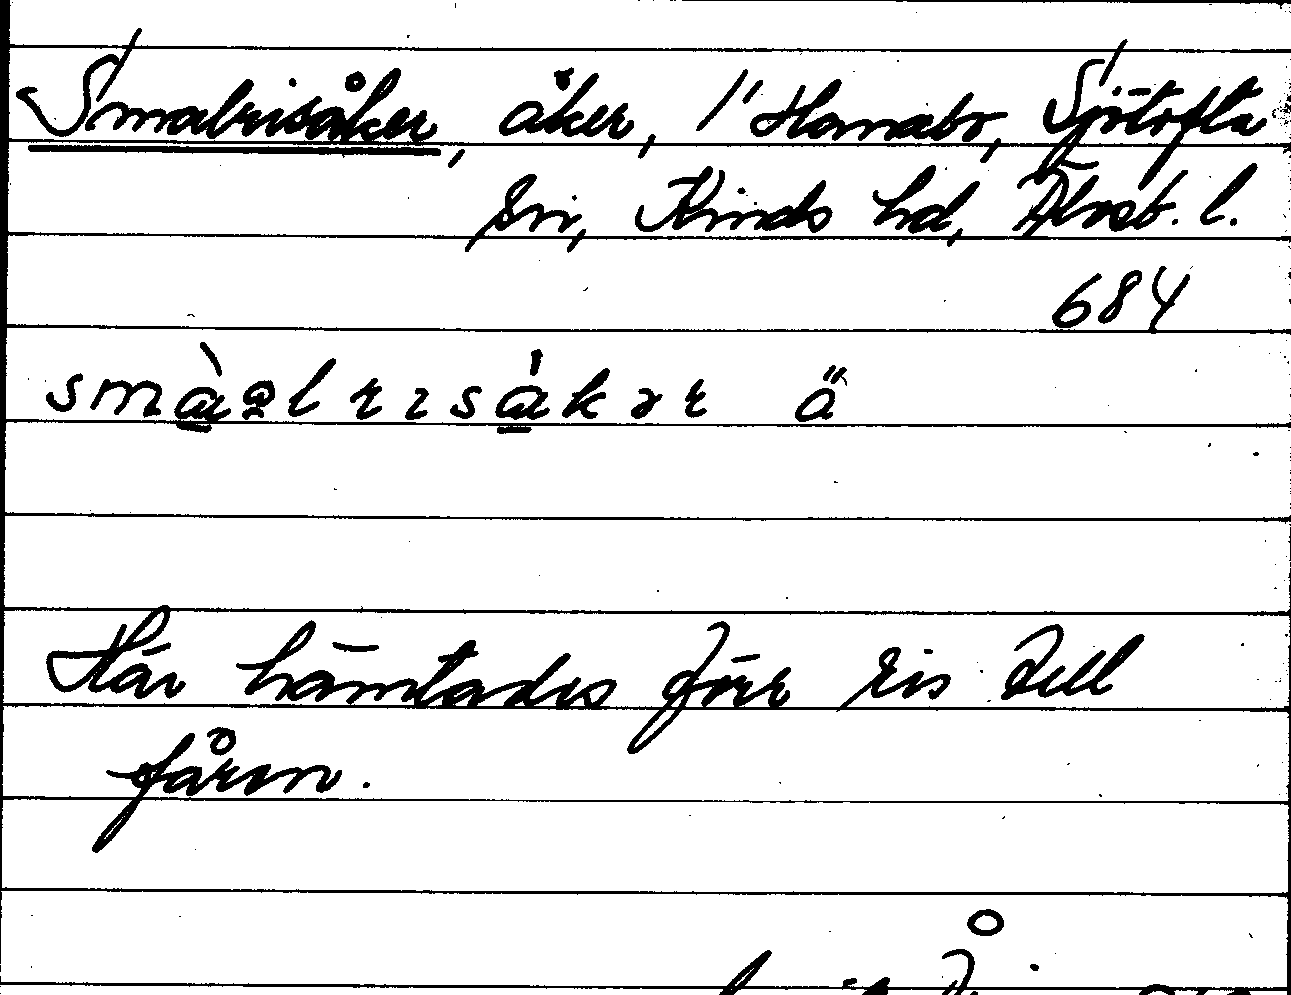 Smalrisåker, åker, 1' Hanabo, Sjötofta
sn, Kinds hd, Älvsb. l.
684
Här hämtades förr ris till
fåren.